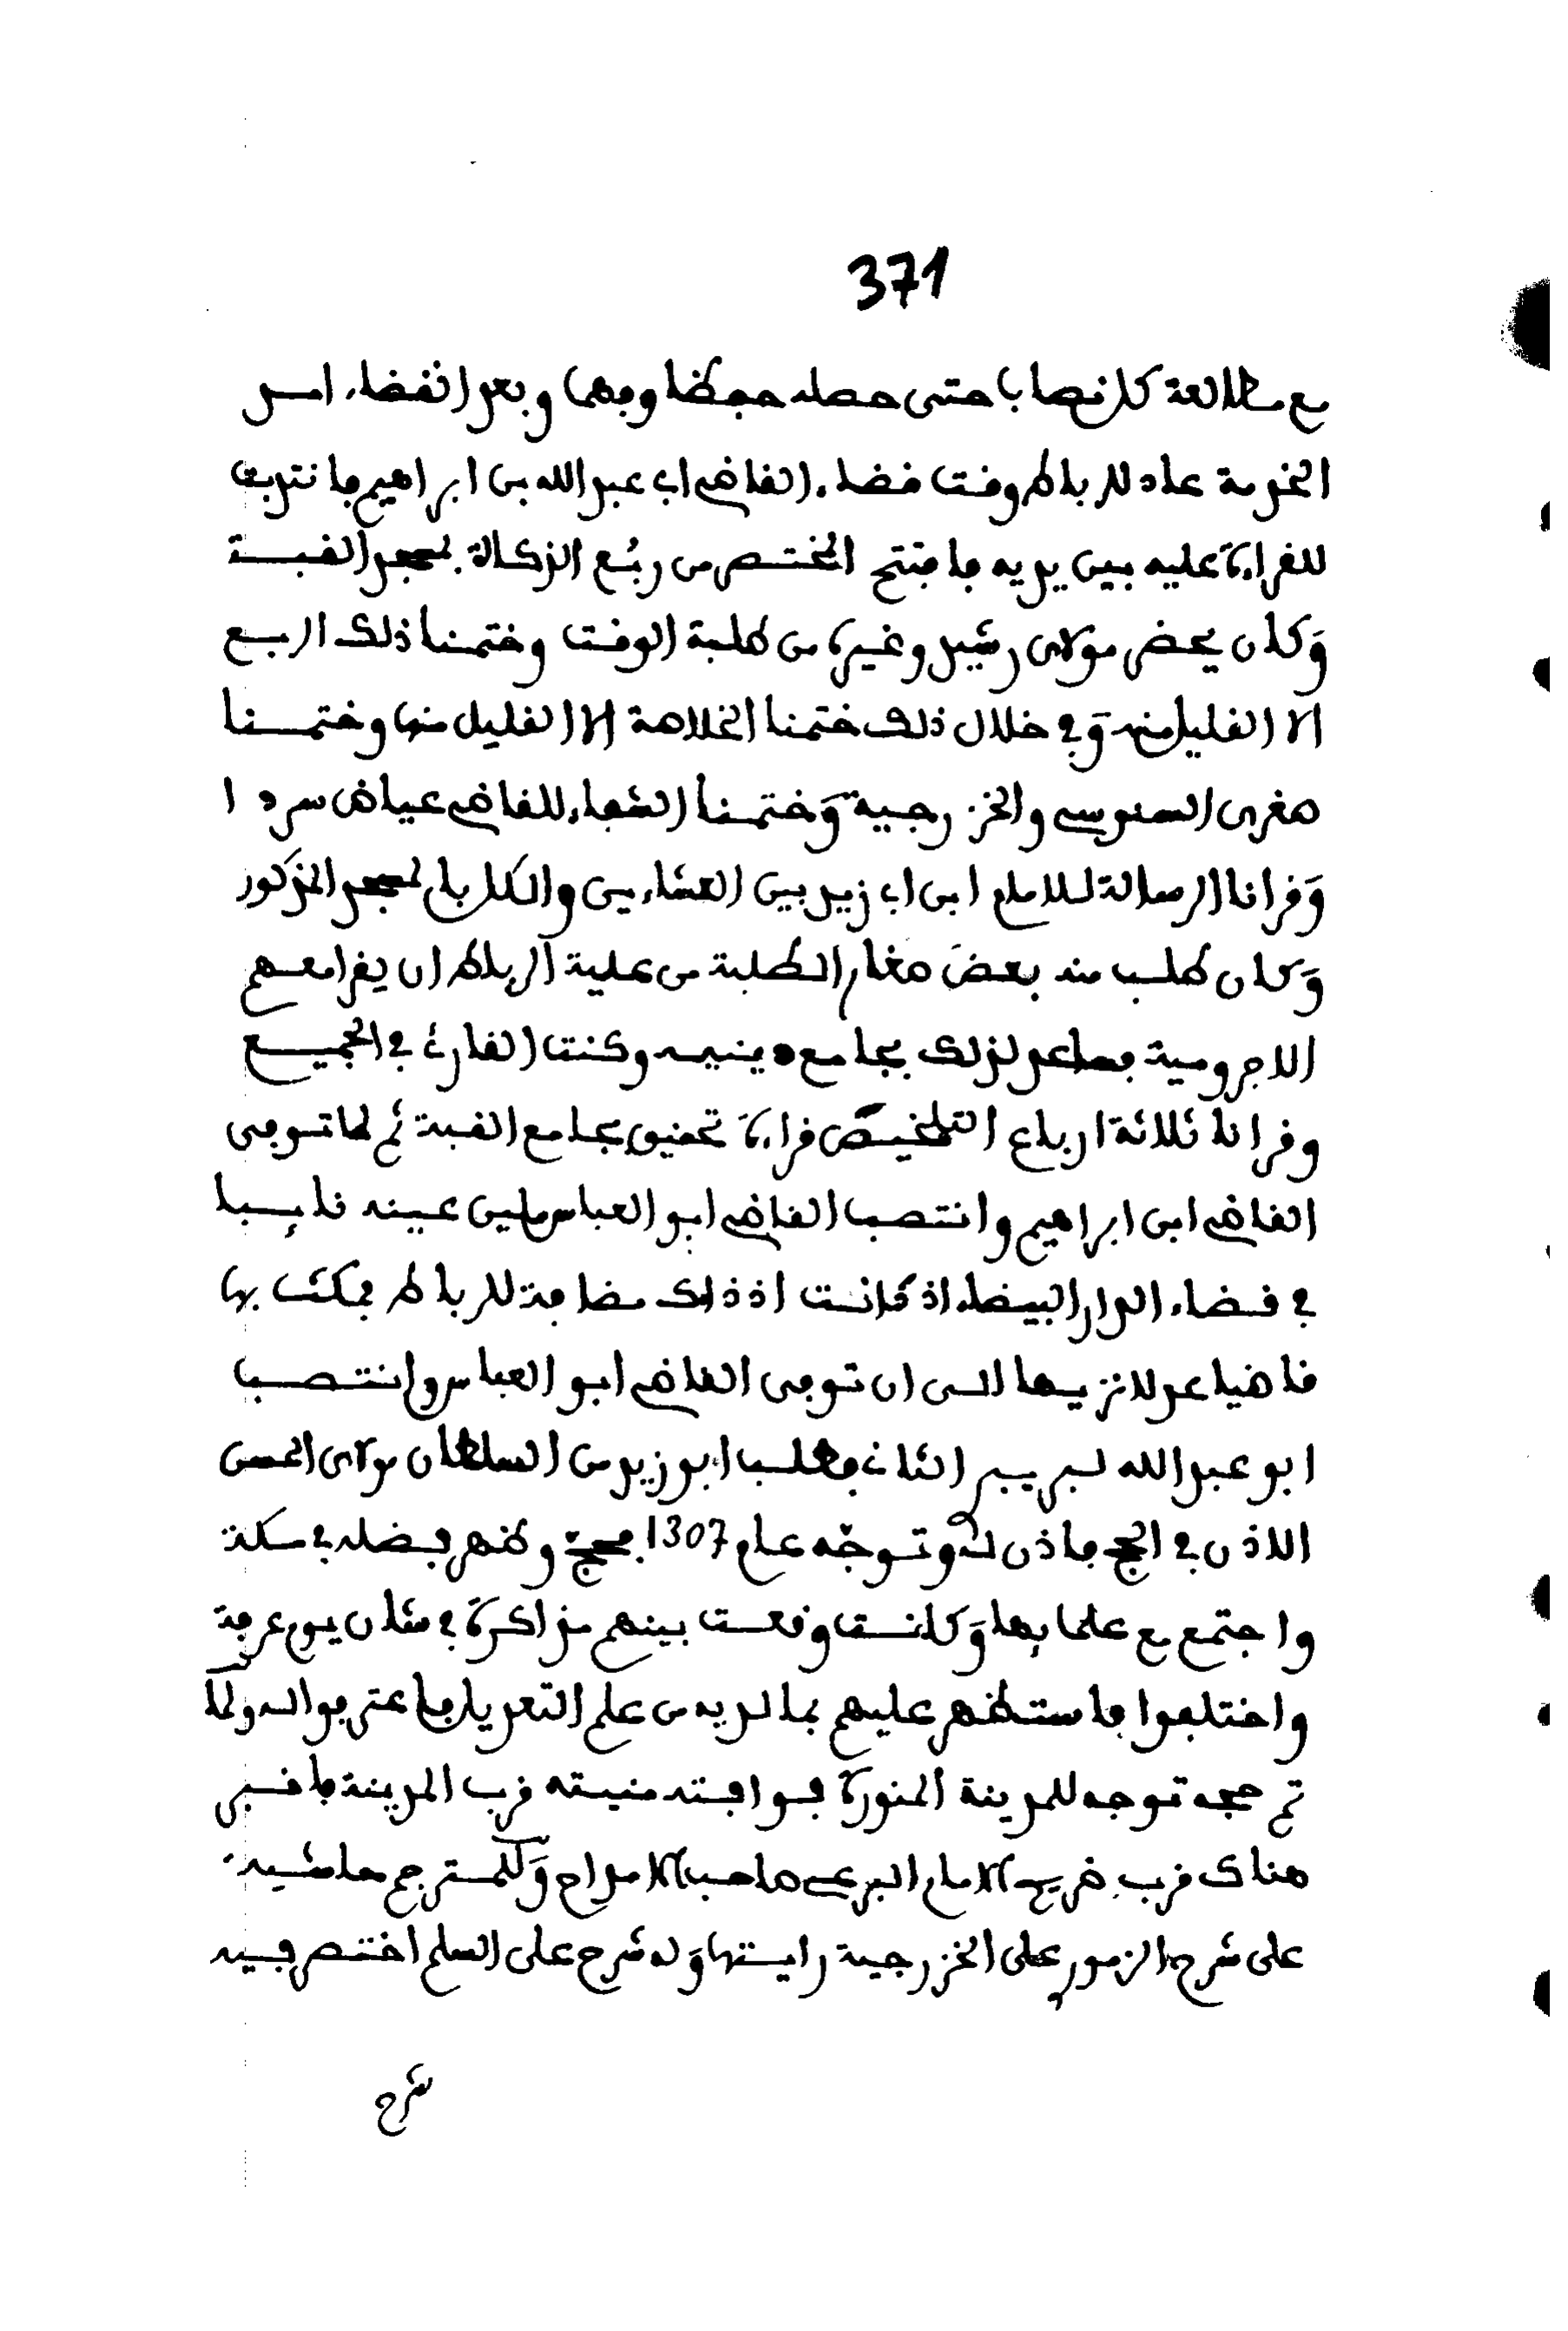 371
مع مطالعة كل نصاب حتى حصله حفظا وفهما وبعد انقضاء امد
الخدمة عاد للرباط وقت قضاء القاضي ابي عبد الله بن ابراهيم فانتدب
للقراءة عليه بين يديه فافتتح المختصر من ربُع الزكاة بمسجد القبة
وَكان يحضر مولاى رشيد وغيره من طلبة الوقت وختمنا ذلك الربع
الا القليل منه وَفي خلال ذلك ختمنا الخلاصة الا القليل منها وختمنا
صغرى السنوسي والخزرجية وَختمنا الشفاء للقاضي عياض سردا
وَقرانا الرسالة للامام ابن ابي زيد بين العشاءين والكل بالمسجد المذكور
وَكان طلب منه بعضَ صغار الطلبة من علية الرباط ان يقرا معهم
الاجرومية فساعد لذلك بجامع دينيه وكنت القارئ في الجميع
وقرانا ثلاثة ارباع التلخيص قراءة تحقيق بجامع القبة ثم لما توفى
القاضي ابن ابراهيم وانتصب القاضي ابو العباس ملين عينه نايبا
في قضاء الدار البيضاء اذ كانت اذ ذاك مضافة للرباط فمكث بها
قاضيا عدلا نزيها الى ان توفى القاضي ابو العباس وانتصب
ابو عبد الله لبريبر الثاني فطلب ابو زيد من السلطان مولاى الحسن
الاذن في الحج فاذن له وتوجّه عام 1307 فحجّ وظهر فضله في مكة
واجتمع مع علمايها وَكانت وقعت بينهم مذاكرة في شان يوم عرفة
واختلفوا فاستظهر عليهم بما لديه من علم التعديل فاعترفوا له ولما
تم حجه توجه للمدينة المنورة فوافته منيته قرب المدينة فاقبر
هناك قرب ضريح الامام البرعي صاحب الامداح وَللمترجم حاشية
على شرح الزموري على الخزرجية رايتها وَله شرح على السلم اختصر فيه
شرح